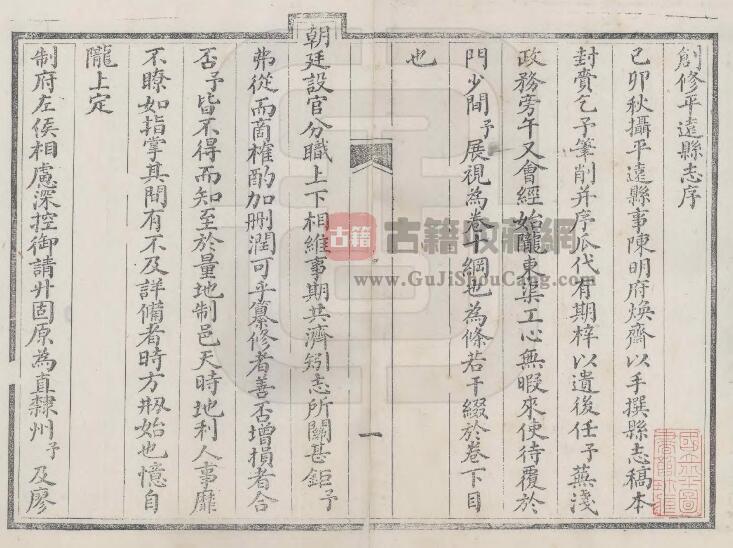 創修平遠縣志序
己卯秋攝平遠縣事陳明府煥齋以手撰縣志稿本
封賫乞予筆削并序瓜代有期梓以遺後任予蕪淺
政務旁午又會經始隴東渠工心無暇來使待覆於
門少間予展視為卷十綱也為條若干綴於卷下目
也
一
朝廷設官分職上下相維事期共濟矧志所關甚鉅予
弗從而商榷酌加刪潤可乎纂修者善否增損者合
否予皆不得而知至於量地制邑天時地利人事靡
不瞭如指掌其間有不及詳備者時方剏始也憶自
隴上定
制府左侯相慮深控御請升固原為直隸州予及廖
古籍 古籍收藏網
www.GuJiShouCang.com